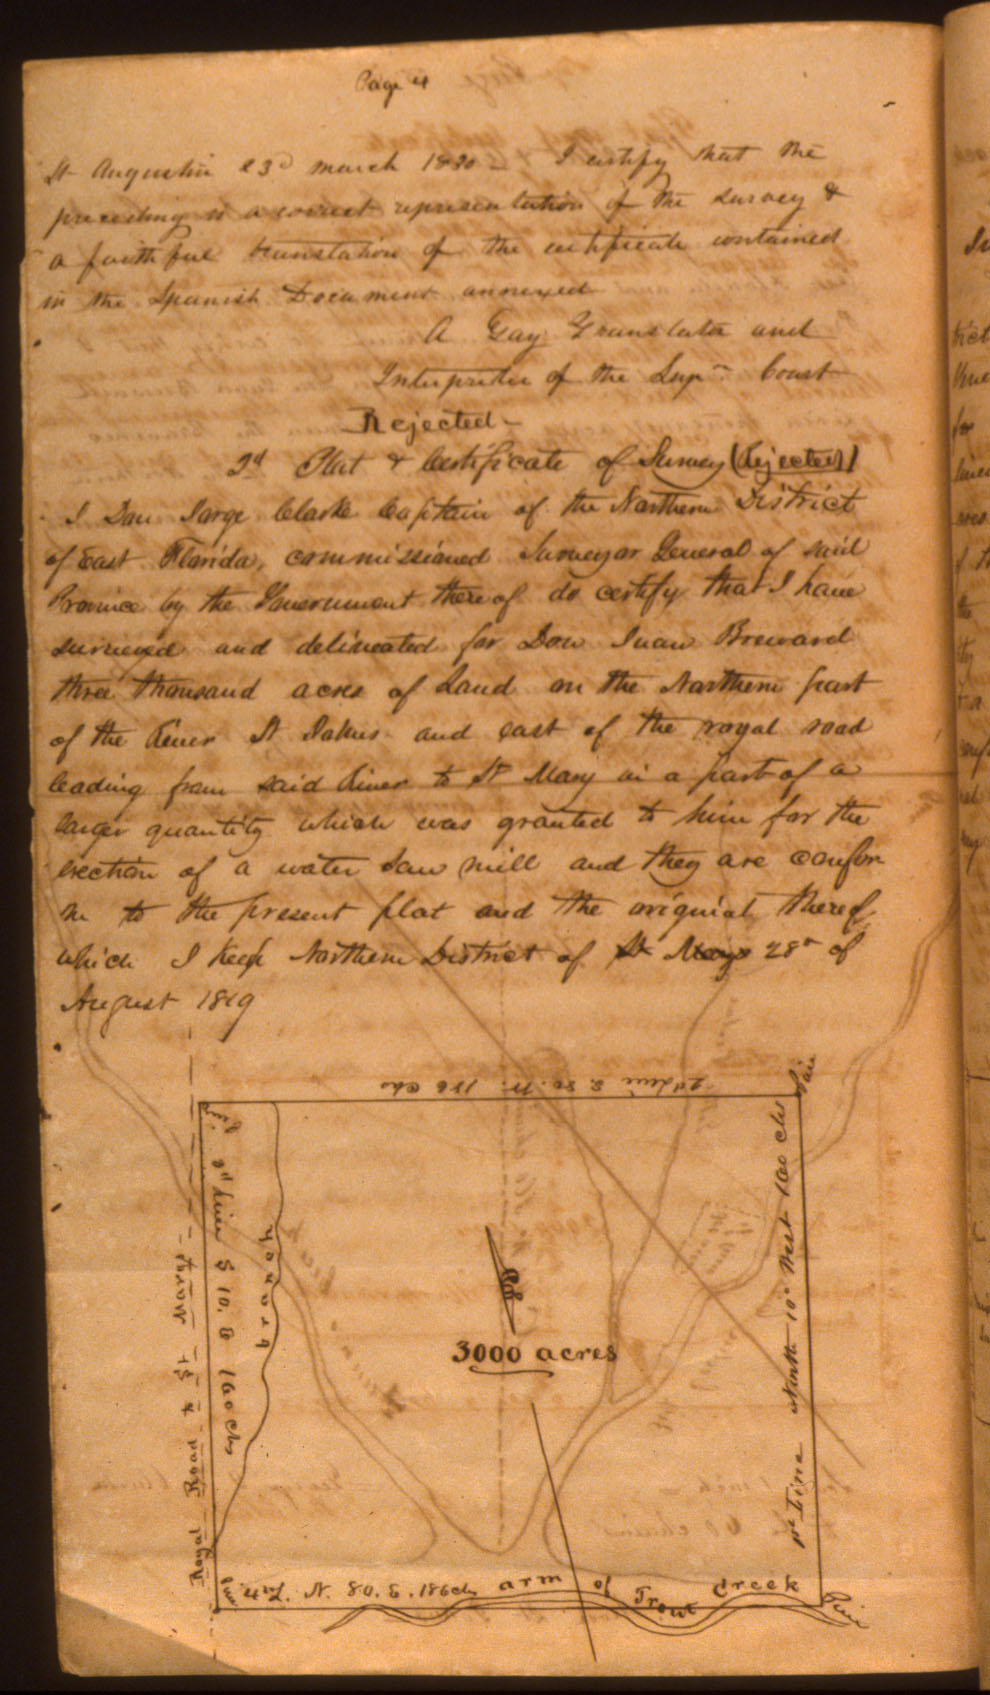 Page 4
St Augustin 23d march 1830 - I certify that the
preceeding is a correct representation of the survey &
a faithful translation of the certificate contained
in the Spanish Document annexed
A Gay Translator and
Interpreter of the Supr Court
Rejected -
2d Plat & Certificate of Survey (Rejected)
I Don Jorge Clarke Captain of the Northern District
of East Florida, commissioned Surveyor General of said
Province by the Government thereof do certify that I have
surveyed and delineated for Don Juan Breward
three thousand acres of Land on the Northern part
of the River St Johns and east of the royal road
leading from said River to St Mary in a part of a
larger quantity which was granted to him for the
erection of a water Saw mill and they are confor
m to the present plat and the original thereof
which I Keep Northern District of St Marys 28th of
August 1819
2d Line S. 80. W. 186 Chs
Pine
Pine
3d Line S 10. E 160 Chs
branch
Royal Road to St Marys
3000 acres
1st Line North 10° West 160 chs
Pine
4th L. N. 80. E. 186 ch
arm of Trout Creek
Pine